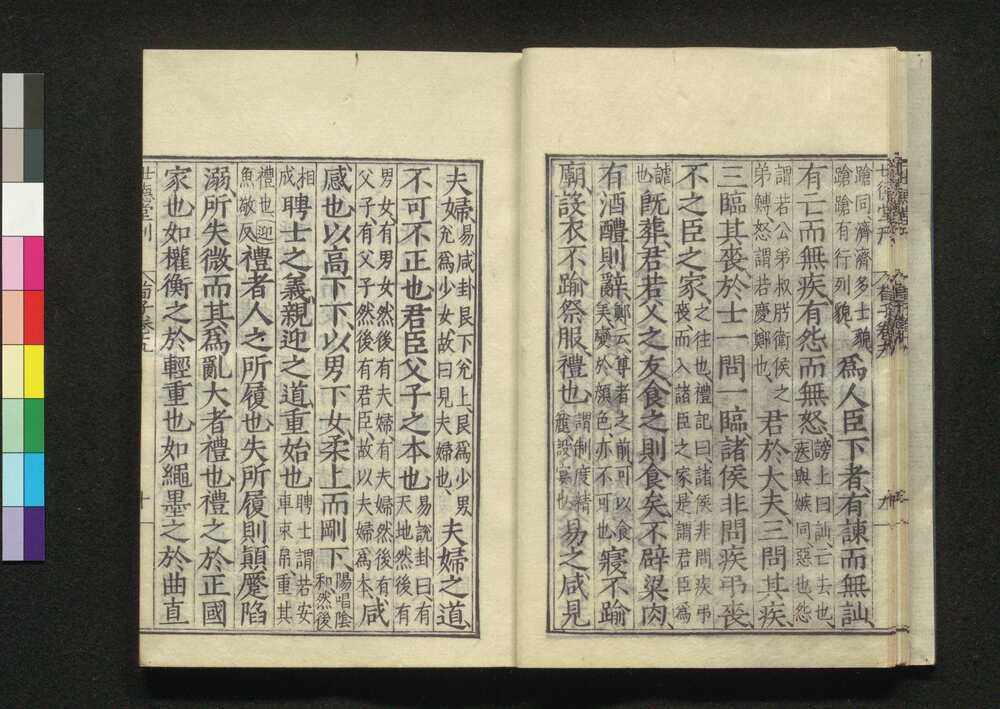 蹌同濟濟多士貌
蹌蹌有行列貌、
爲人臣下者有諫而無訕、
有亡而無疾、有怨而無怒、
謗上曰訕、亡去也、
疾與嫉同惡也、怨
謂若公弟叔肸衛侯之
弟鱄、怒謂若慶鄭也、
君於大夫、三問其疾、
三臨其喪、於士一問一臨諸侯非問疾弔喪、
不之臣之家、
之往也、禮記曰諸侯非問疾弔
喪、而入諸臣之家是謂君臣爲
謔
也
旣葬、君若父之友食之則食矣不辟梁肉、
有酒醴則辭、
鄭云尊者之前、可以食
美、變於顏色亦不可也
寢不踰
廟、設衣不踰祭服、禮也、
謂制度精
麤設宴也
易之咸見
夫婦、
易咸卦艮下兌上、艮爲少男
兌爲少女故曰見夫婦也、
夫婦之道、
不可不正也君臣父子之本也
易說卦曰有
天地然後有
男女、有男女然後有夫婦、有夫婦然後有
父子有父子然後有君臣故以夫婦爲本、
咸
感也以高下下、以男下女、柔上而剛下、
陽唱陰
和然後
相
成
聘士之義、親迎之道重始也
聘士謂若安
車束帛重其
禮也、迎
魚敬反
禮者人之所履也失所履則顛蹷陷
溺所失微而其爲亂大者禮也禮之於正國
家也如權衡之於輕重也如繩墨之於曲直